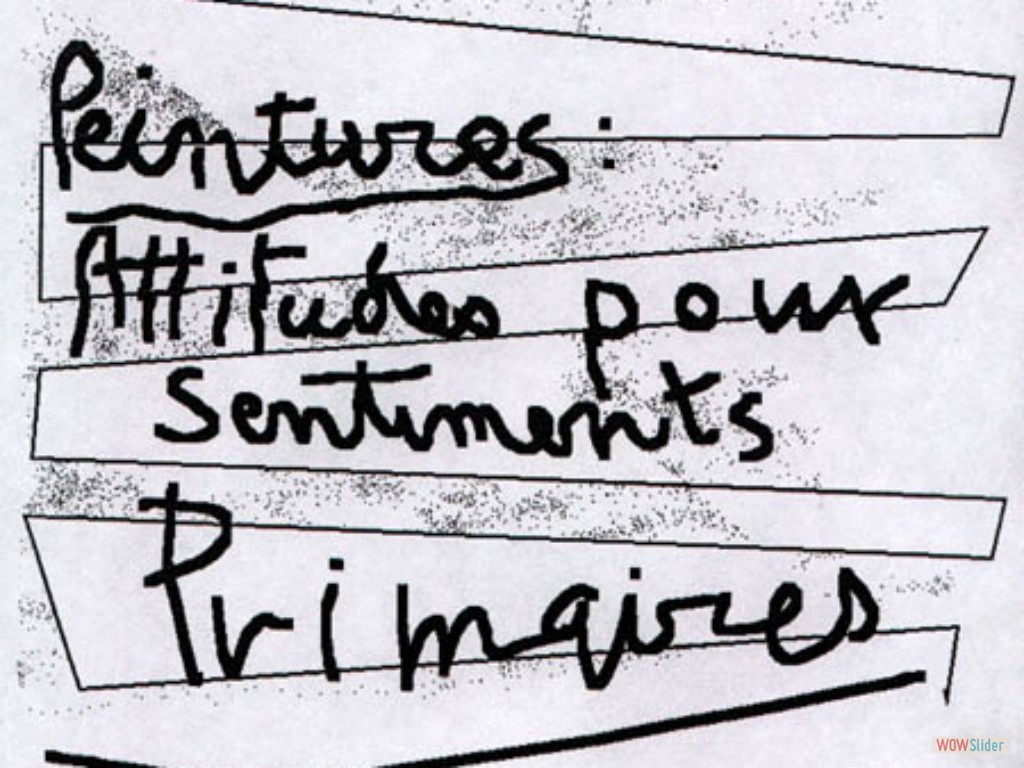 Peintures :
Attitudes pour
Sentiments
Primaires
WOWSlider